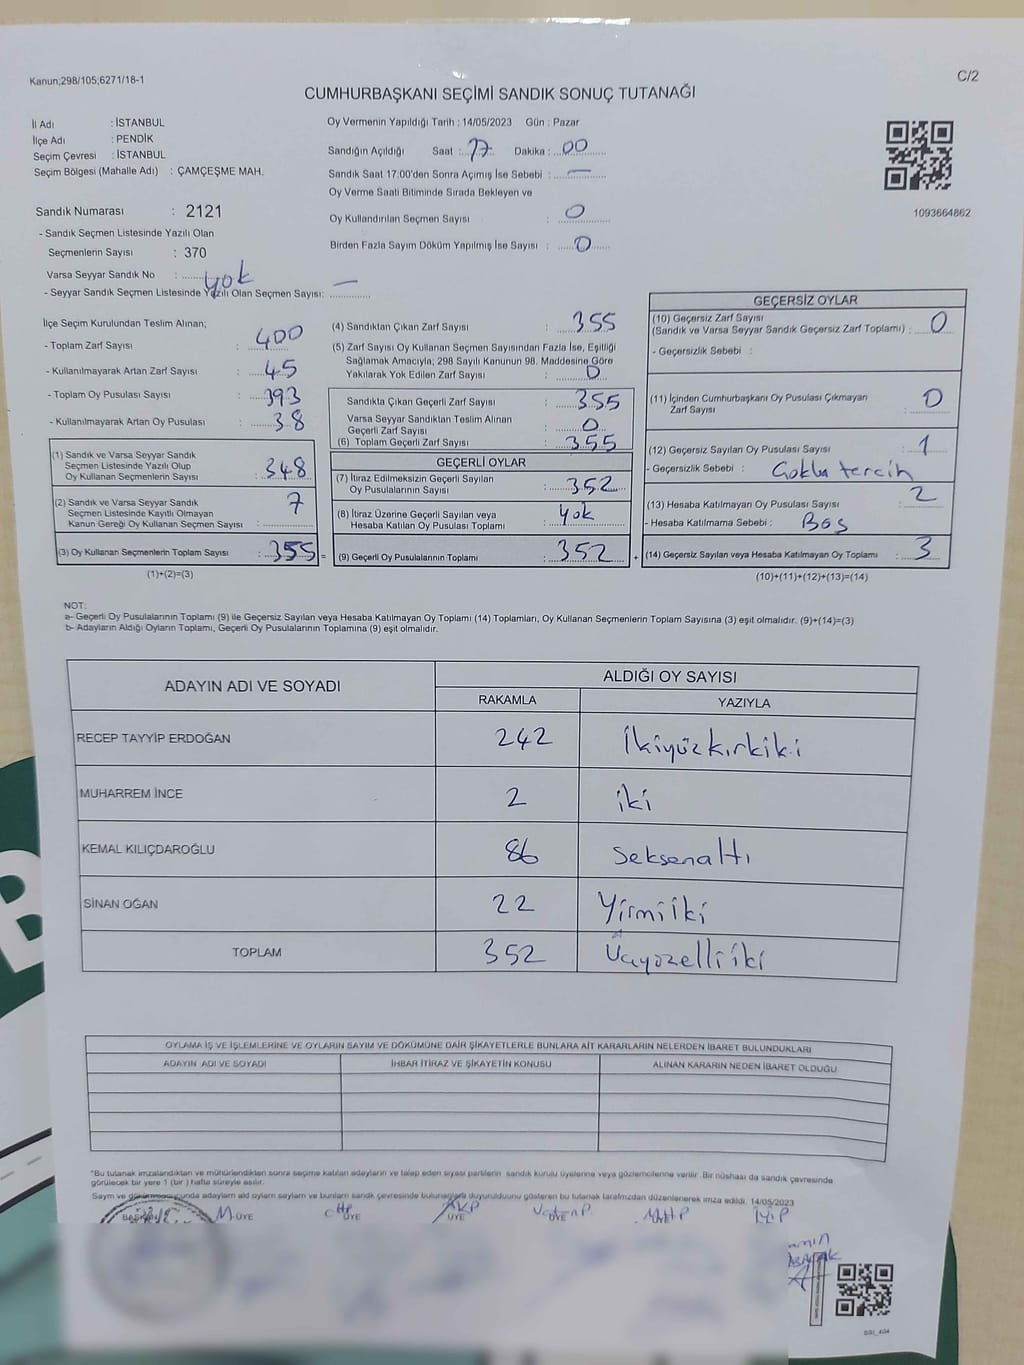 Kanun;298/105;6271/18-1
C/2
CUMHURBAŞKANI SEÇİMİ SANDIK SONUÇ TUTANAĞI
İl Adı : İSTANBUL
İlçe Adı : PENDİK
Seçim Çevresi : İSTANBUL
Seçim Bölgesi (Mahalle Adı) : ÇAMÇEŞME MAH.
Sandık Numarası : 2121
- Sandık Seçmen Listesinde Yazılı Olan
Seçmenlerin Sayısı : 370
Varsa Seyyar Sandık No : yok
- Seyyar Sandık Seçmen Listesinde Yazılı Olan Seçmen Sayısı: —
Oy Vermenin Yapıldığı Tarih : 14/05/2023 Gün : Pazar
Sandığın Açıldığı Saat : 17 Dakika : 00
Sandık Saat 17:00'den Sonra Açımış İse Sebebi : —
Oy Verme Saati Bitiminde Sırada Bekleyen ve
Oy Kullandırılan Seçmen Sayısı : 0
Birden Fazla Sayım Döküm Yapılmış İse Sayısı : 0
1093664862
İlçe Seçim Kurulundan Teslim Alınan;
- Toplam Zarf Sayısı : 400
- Kullanılmayarak Artan Zarf Sayısı : 45
- Toplam Oy Pusulası Sayısı : 393
- Kullanılmayarak Artan Oy Pusulası : 38
(1) Sandık ve Varsa Seyyar Sandık
Seçmen Listesinde Yazılı Olup
Oy Kullanan Seçmenlerin Sayısı : 348
(2) Sandık ve Varsa Seyyar Sandık
Seçmen Listesinde Kayıtlı Olmayan
Kanun Gereği Oy Kullanan Seçmen Sayısı : 7
(3) Oy Kullanan Seçmenlerin Toplam Sayısı : 355 =
(1)+(2)=(3)
(4) Sandıktan Çıkan Zarf Sayısı : 355
(5) Zarf Sayısı Oy Kullanan Seçmen Sayısından Fazla İse, Eşitliği
Sağlamak Amacıyla; 298 Sayılı Kanunun 98. Maddesine Göre
Yakılarak Yok Edilen Zarf Sayısı : 0
Sandıkta Çıkan Geçerli Zarf Sayısı : 355
Varsa Seyyar Sandıktan Teslim Alınan
Geçerli Zarf Sayısı : 0
(6) Toplam Geçerli Zarf Sayısı : 355
GEÇERLİ OYLAR
(7) İtiraz Edilmeksizin Geçerli Sayılan
Oy Pusulalarının Sayısı : 352
(8) İtiraz Üzerine Geçerli Sayılan veya
Hesaba Katılan Oy Pusulası Toplamı : yok
(9) Geçerli Oy Pusulalarının Toplamı : 352 +
GEÇERSİZ OYLAR
(10) Geçersiz Zarf Sayısı
(Sandık ve Varsa Seyyar Sandık Geçersiz Zarf Toplamı) : 0
- Geçersizlik Sebebi :
(11) İçinden Cumhurbaşkanı Oy Pusulası Çıkmayan
Zarf Sayısı : 0
(12) Geçersiz Sayılan Oy Pusulası Sayısı : 1
- Geçersizlik Sebebi : Çoklu tercih
(13) Hesaba Katılmayan Oy Pusulası Sayısı : 2
- Hesaba Katılmama Sebebi : Boş
(14) Geçersiz Sayılan veya Hesaba Katılmayan Oy Toplamı : 3
(10)+(11)+(12)+(13)=(14)
NOT:
a- Geçerli Oy Pusulalarının Toplamı (9) ile Geçersiz Sayılan veya Hesaba Katılmayan Oy Toplamı (14) Toplamları, Oy Kullanan Seçmenlerin Toplam Sayısına (3) eşit olmalıdır. (9)+(14)=(3)
b- Adayların Aldığı Oyların Toplamı, Geçerli Oy Pusulalarının Toplamına (9) eşit olmalıdır.
ADAYIN ADI VE SOYADI
ALDIĞI OY SAYISI
RAKAMLA YAZIYLA
RECEP TAYYİP ERDOĞAN 242 İkiyüzkırkiki
MUHARREM İNCE 2 iki
KEMAL KILIÇDAROĞLU 86 Seksenaltı
SİNAN OĞAN 22 Yirmiiki
TOPLAM 352 Üçyüzelliiki
OYLAMA İŞ VE İŞLEMLERİNE VE OYLARIN SAYIM VE DÖKÜMÜNE DAİR ŞİKAYETLERLE BUNLARA AİT KARARLARIN NELERDEN İBARET BULUNDUKLARI
ADAYIN ADI VE SOYADI İHBAR İTİRAZ VE ŞİKAYETİN KONUSU ALINAN KARARIN NEDEN İBARET OLDUĞU
"Bu tutanak imzalandıktan ve mühürlendikten sonra seçime katılan adayların ve talep eden siyasi partilerin sandık kurulu üyelerine veya gözlemcilerine verilir. Bir nüshası da sandık çevresinde
görülecek bir yere 1 (bir) hafta süreyle asılır.
Sayım ve adayların ald oyların sayları ve bunların sandık çevresinde gösteren bu tutanak düzenlenerek imza edildi. 14/05/2023
BAŞKAN M.ÜYE CHP ÜYE AKP ÜYE Vatan P. ÜYE MHP İYİP
SSI_404